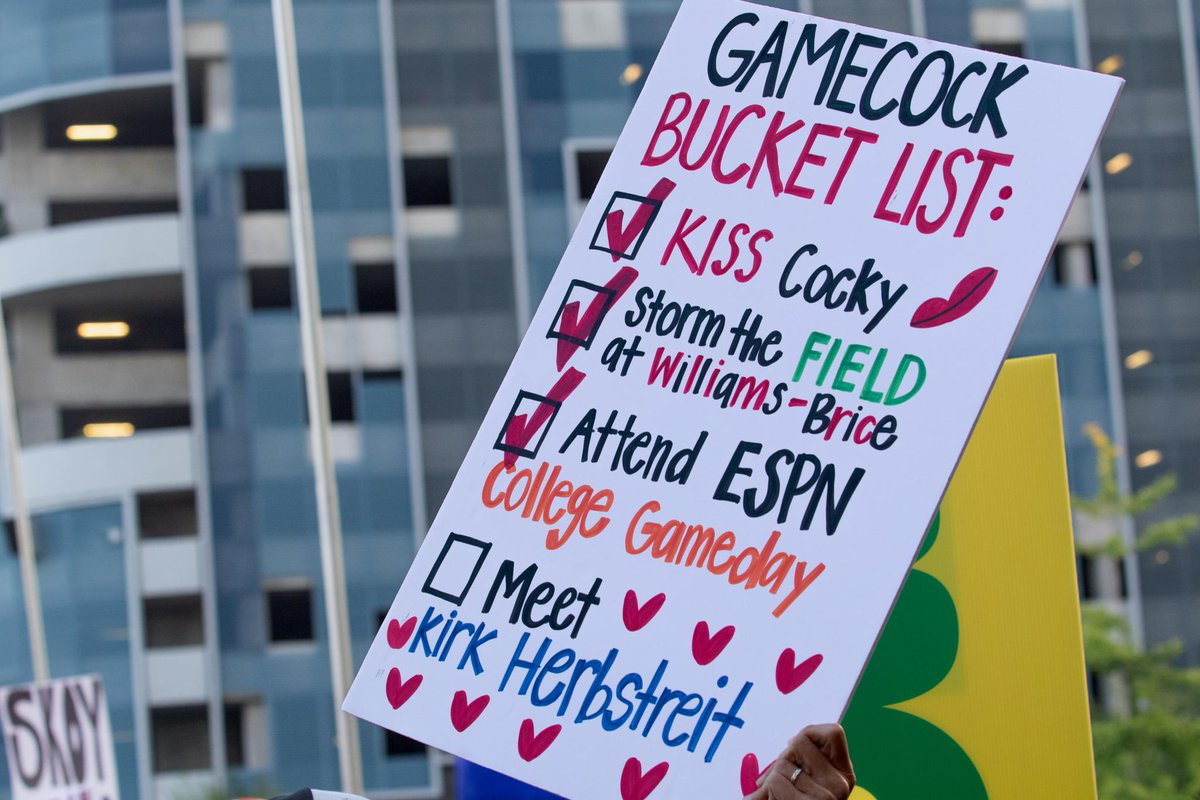 GAMECOCK
BUCKET LIST:
KISS Cocky
Storm the FIELD
at Williams-Brice
Attend ESPN
College Gameday
Meet
Kirk Herbstreit
SKOY